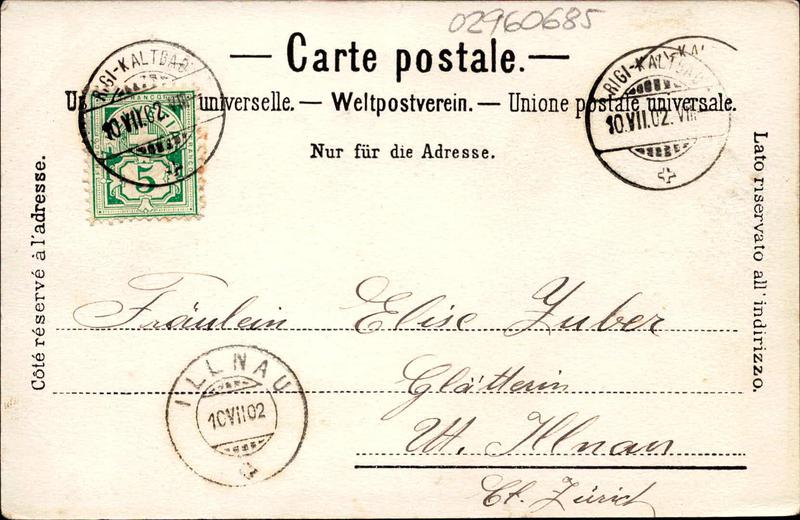 02960685
— Carte postale. —
universelle. — Weltpostverein. — Unione postale universale.
Nur für die Adresse.
RIGI-KALTBAD
10.VII.02.
RIGI-KALTBAD
10.VII.02. VIII
FRANCO
5
Côté réservé à l'adresse.
Lato riservato all' indirizzo.
Fräulein Elise Zuber
Glätterin
Ut. Illnau
Ct. Zürich
ILLNAU
10VII02